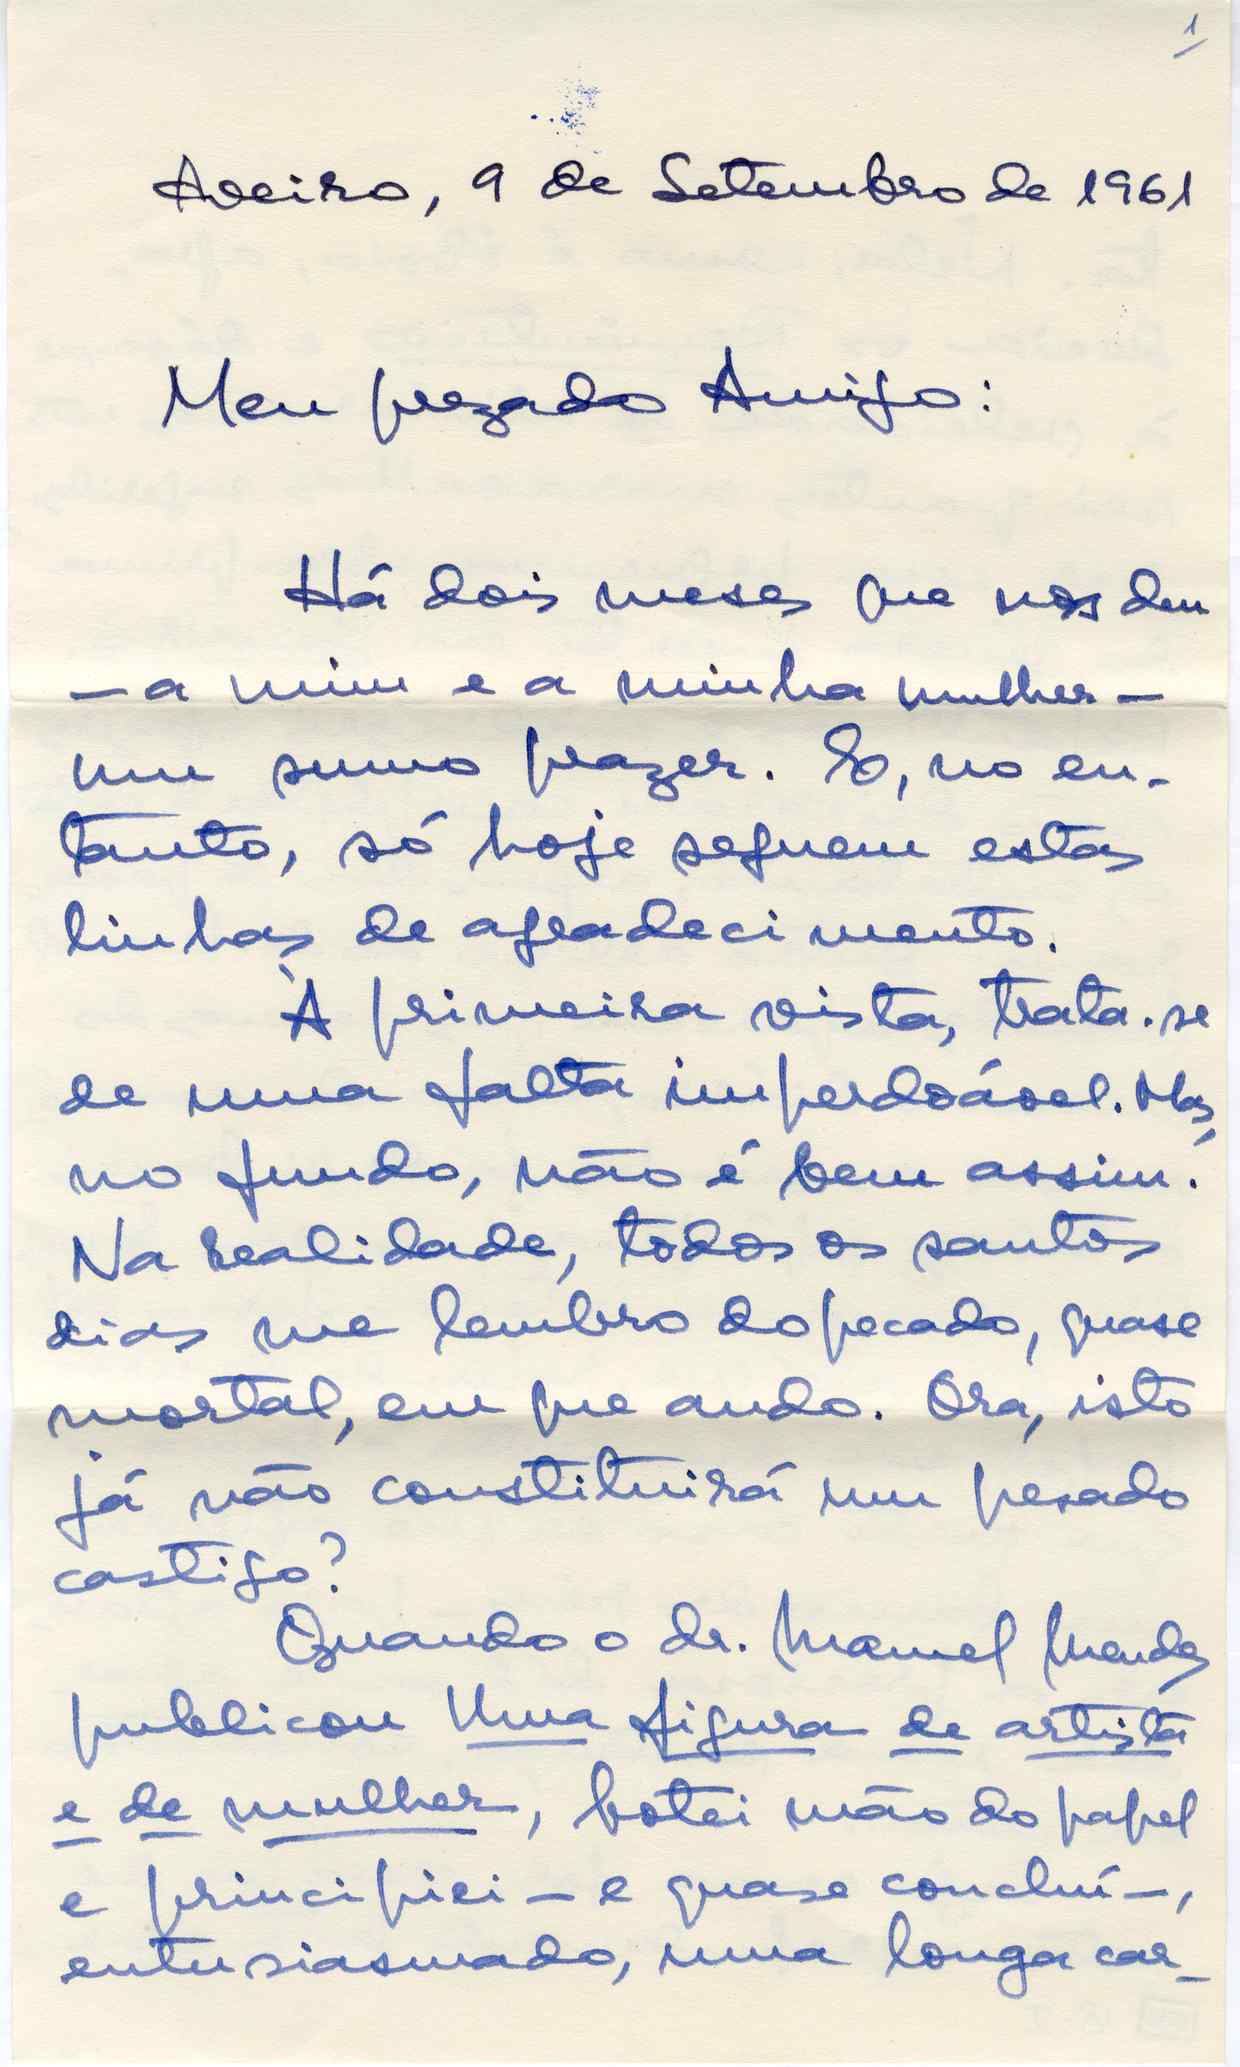 1
Aveiro, 9 de Setembro de 1961
Meu prezado Amigo:
Há dois meses que nos deu
— a mim e a minha mulher —
um sumo prazer. E, no en-
tanto, só hoje seguem estas
linhas de agradecimento.
À primeira vista, trata-se
de uma falta imperdoável. Mas,
no fundo, não é bem assim.
Na realidade, todos os santos
dias me lembro do pecado, quase
mortal, em que ando. Ora, isto
já não constituirá um pesado
castigo?
Quando o dr. Manuel Mendes
publicou Uma figura de artista
e de mulher, botei mão do papel
e principiei — e quase concluí —,
entusiasmado, uma longa car-